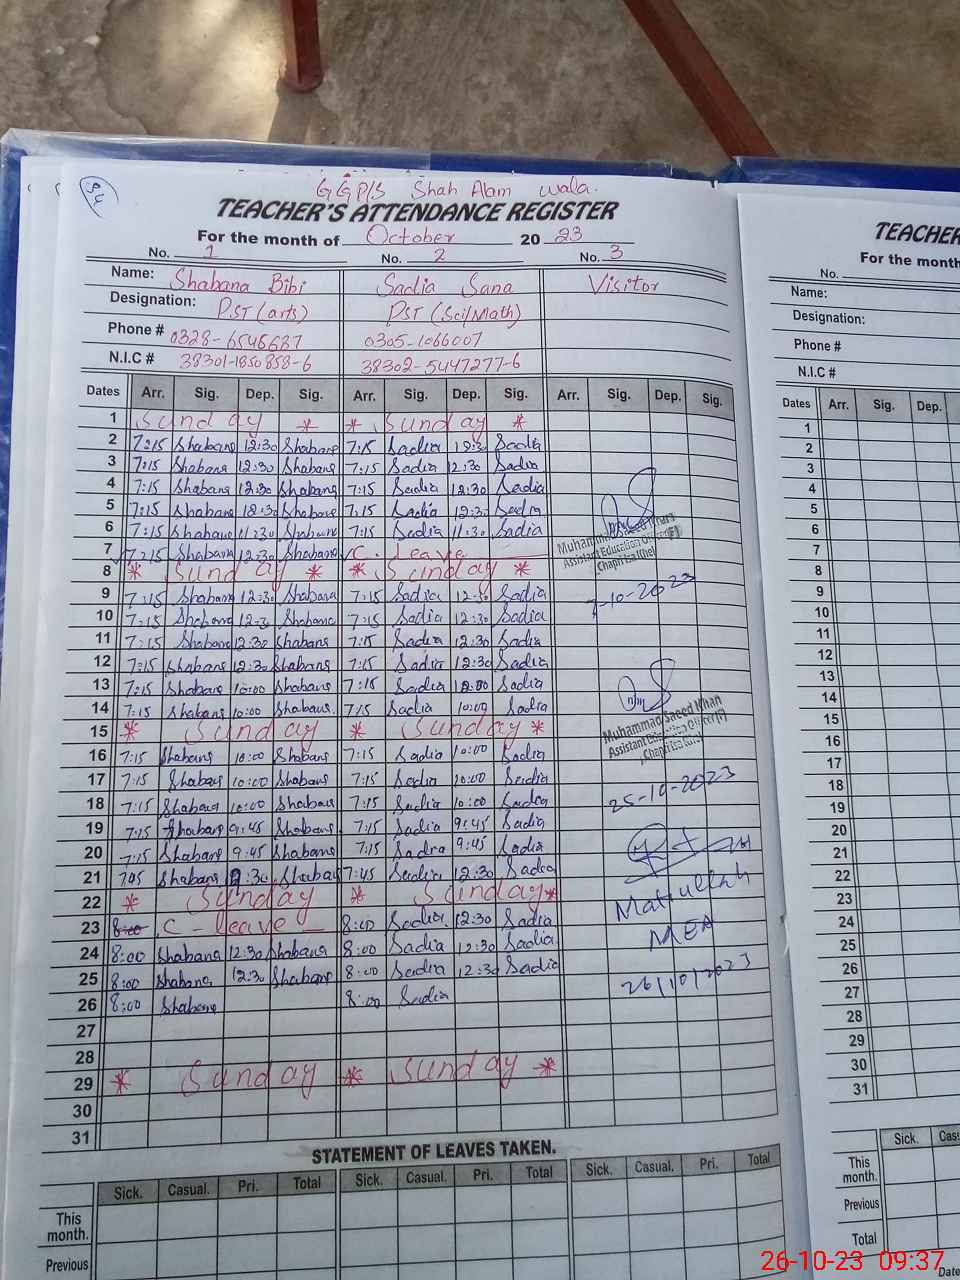 54
GGP/S Shah Alam wala.
TEACHER'S ATTENDANCE REGISTER
For the month of October 2023
No. 1 No. 2 No. 3
Name: Shabana Bibi Sadia Sana Visitor
Designation: PST (arts) PST (Sci/Math)
Phone # 0328-6546687 0305-1066007
N.I.C # 38301-1850858-6 38302-5447277-6
Dates Arr. Sig. Dep. Sig. Arr. Sig. Dep. Sig. Arr. Sig. Dep. Sig.
1 Sunday * * Sunday *
2 7:15 Shabana 12:30 Shabana 7:15 Sadia 12:30 Sadia
3 7:15 Shabana 12:30 Shabana 7:15 Sadia 12:30 Sadia
4 7:15 Shabana 12:30 Shabana 7:15 Sadia 12:30 Sadia
5 7:15 Shabana 12:30 Shabana 7:15 Sadia 12:30 Sadia
6 7:15 Shabana 11:30 Shabana 7:15 Sadia 11:30 Sadia
7 7:15 Shabana 12:30 Shabana C. leave
Muhammad Saeed Khan
Assistant Education Officer(F)
Chapri (Isa Khel)
8 * Sunday * * Sunday *
9 7:15 Shabana 12:30 Shabana 7:15 Sadia 12:30 Sadia 7-10-2023
10 7:15 Shabana 12:30 Shabana 7:15 Sadia 12:30 Sadia
11 7:15 Shabana 12:30 Shabana 7:15 Sadia 12:30 Sadia
12 7:15 Shabana 12:30 Shabana 7:15 Sadia 12:30 Sadia
13 7:15 Shabana 10:00 Shabana 7:15 Sadia 10:00 Sadia
14 7:15 Shabana 10:00 Shabana. 7:15 Sadia 10:00 Sadia
15 * Sunday * Sunday *
Muhammad Saeed Khan
Assistant Education Officer(F)
Chapri (Isa Khel)
16 7:15 Shabana 10:00 Shabana 7:15 Sadia 10:00 Sadia
17 7:15 Shabana 10:00 Shabana 7:15 Sadia 10:00 Sadia
18 7:15 Shabana 10:00 Shabana 7:15 Sadia 10:00 Sadia 25-10-2023
19 7:15 Shabana 9:45 Shabana 7:15 Sadia 9:45 Sadia
20 7:15 Shabana 9:45 Shabana 7:15 Sadia 9:45 Sadia
21 7:45 Shabana 12:30 Shabana 7:45 Sadia 12:30 Sadia
22 * Sunday * Sunday * Matiullah
23 8:00 C-leave 8:00 Sadia 12:30 Sadia MEA
24 8:00 Shabana 12:30 Shabana 8:00 Sadia 12:30 Sadia
25 8:00 Shabana 12:30 Shabana 8:00 Sadia 12:30 Sadia 26/10/2023
26 8:00 Shabana 8:00 Sadia
27
28
29 * Sunday * Sunday *
30
31
STATEMENT OF LEAVES TAKEN.
Sick. Casual. Pri. Total Sick. Casual. Pri. Total Sick. Casual. Pri. Total
This month.
Previous
TEACHER
For the month
No.
Name:
Designation:
Phone #
N.I.C #
Dates Arr. Sig. Dep.
1
2
3
4
5
6
7
8
9
10
11
12
13
14
15
16
17
18
19
20
21
22
23
24
25
26
27
28
29
30
31
Sick. Cas
This month.
Previous
Total
Date
26-10-23 09:37